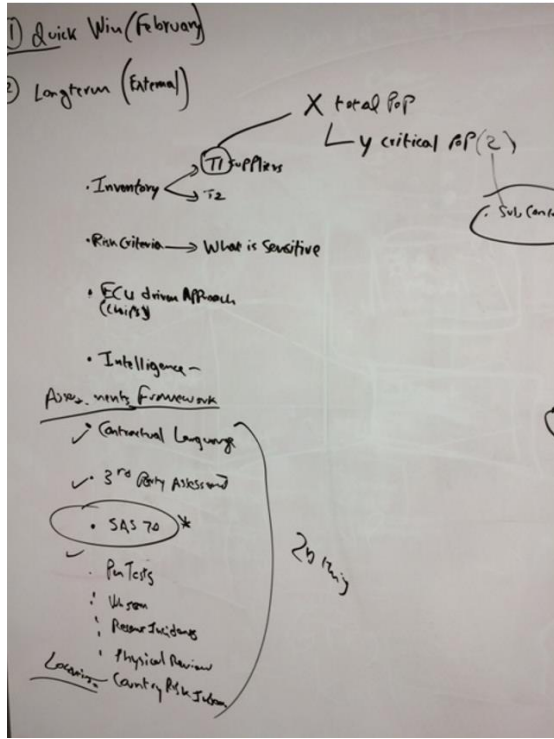 1 Quick Win (February)
2 Longterm (External)
X total PoP
y critical PoP (2)
T1 Suppliers
• Inventory
T2
• Sub Con
• Risk Criteria → What is Sensitive
• ECU driven Approach
(Chips)
• Intelligence –
Framework
✓ • Contractual Language
✓ • 3rd Party Assessment
• SAS 70 *
✓
• Pen Tests
• Recent Incidents
• Physical Review
Country Risk